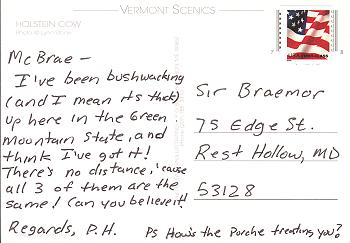 VERMONT SCENICS
HOLSTEIN COW
McBrae –
I've been bushwacking
(and I mean its thick)
up here in the Green
Mountain State, and
think I've got it!
There's no distance, 'cause
all 3 of them are the
same! Can you believe it!
Regards, P.H.
Sir Braemor
75 Edge St.
Rest Hollow, MD
53128
Ps How's the Porche treating you?